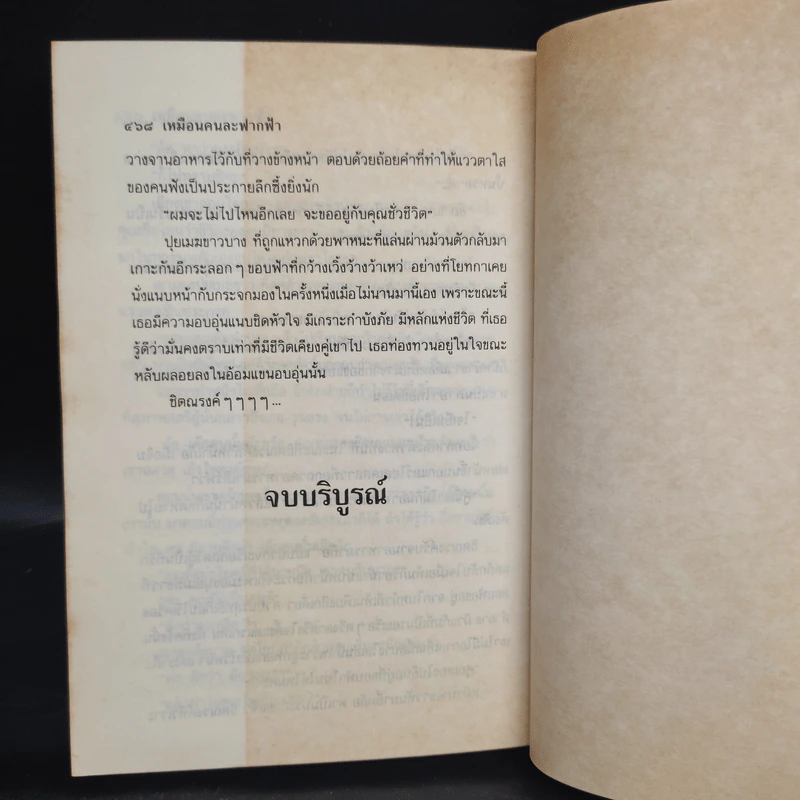 ๔๖๘ เหมือนคนละฟากฟ้า
วางจานอาหารไว้กับที่วางข้างหน้า ตอบด้วยถ้อยคำที่ทำให้แววตาใส
ของคนฟังเป็นประกายลึกซึ้งยิ่งนัก
"ผมจะไม่ไปไหนอีกเลย จะขออยู่กับคุณชั่วชีวิต"
ปุยเมฆขาวบาง ที่ถูกแหวกด้วยพาหนะที่แล่นผ่านม้วนตัวกลับมา
เกาะกันอีกระลอกๆ ขอบฟ้าที่กว้างเวิ้งว้างว้าเหว่ อย่างที่โยทกาเคย
นั่งแนบหน้ากับกระจกมองในครั้งหนึ่งเมื่อไม่นานมานี้เอง เพราะขณะนี้
เธอมีความอบอุ่นแนบชิดหัวใจ มีเกราะกำบังภัย มีหลักแห่งชีวิต ที่เธอ
รู้ดีว่ามั่นคงตราบเท่าที่มีชีวิตเคียงคู่เขาไป เธอท่องทวนอยู่ในใจขณะ
หลับผล็อยลงในอ้อมแขนอบอุ่นนั้น
ชิตณรงค์ ๆ ๆ ๆ ๆ ...
จบบริบูรณ์